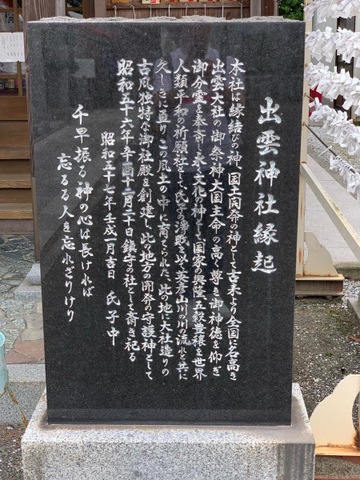 出雲神社縁起
本社は縁結びの神、国土開発の神として古来より全国に名高き
出雲大社の御祭神大国主命の高く尊き御神徳を仰ぎ
御分霊を奉斎し永く文化の神として国家の興隆五穀豊穣を世界
人類平和の祈願社として氏子の浄財を以て菩彦山川の川の流れと共に
久しきに亘りこの風土の中に育てられた、此の地に大社造りの
古風独特な御社殿を創建し、此地方の開発の守護神として
昭和五十六年辛酉十一月三十日鎮守の社として斎き祀る
昭和五十七年壬戌一月吉日 氏子中
千早振る神の心は長ければ
忘るる人を忘れざりけり